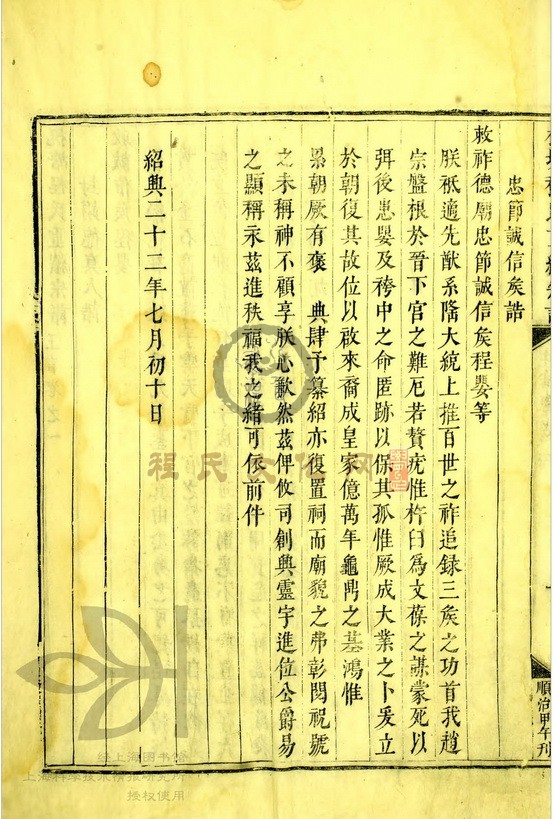 忠節誠信矦誥
敕祚德廟忠節誠信矦程嬰等
朕祇適先猷系隆大統上推百世之祚追録三矦之功首我趙
宗盤根於晉下官之難厄若贅疣惟杵臼爲文葆之謀蒙死以
弭後患嬰及袴中之命匿跡以保其孤惟厥成大業之卜爰立
於朝復其故位以啟來裔成皇家億萬年龜鼎之基鴻惟
累朝厥有褒 典肆予纂紹亦復置祠而廟貌之弗彰閔祝號
之未稱神不顧享朕心歉然茲俾攸司創興靈宇進位公爵易
之顯稱永茲進秩福我之緒可依前件
紹興二十二年七月初十日
順治甲午刊
程氏文化网
经上海图书馆
上海科学技术情报研究所
授权使用